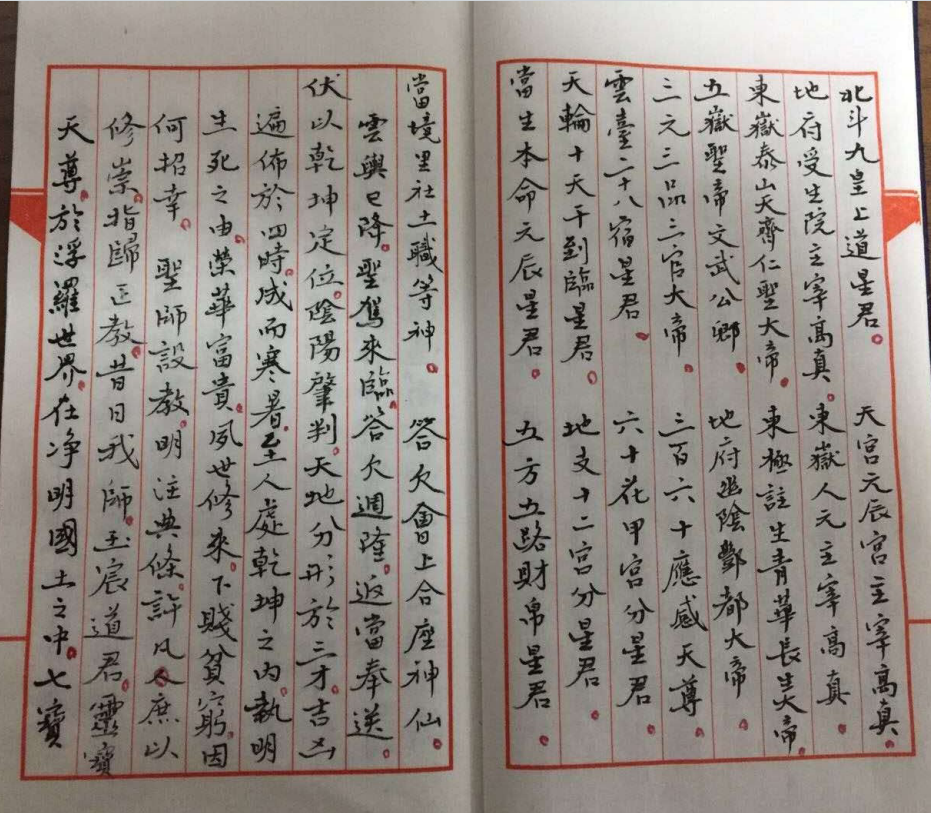 北斗九皇上道星君。天宮元辰宮主宰高真。
地府受生院主宰高真。東嶽人元主宰高真。
東嶽泰山天齊仁聖大帝。東極註生青華長生大帝。
五嶽聖帝文武公卿。地府幽陰酆都大帝。
三元三品三官大帝。三百六十應感天尊。
雲臺二十八宿星君。六十花甲宮分星君。
天輪十天干到臨星君。地支十二宮分星君。
當生本命元辰星君。五方五路財帛星君。
當境里社土職等神。答欠會上合座神仙。
雲輿已降。聖駕來臨。答欠週隆。返當奉送。
伏以乾坤定位。陰陽肇判。天地分形於三才。吉凶
遍佈於四時。成而寒暑。至人處乾坤之内。執明
生死之由。榮華富貴。夙世修來。下賤貧窮。因
何招幸。聖師設教。明注典條。許凡人庶以
修崇。指歸正教。昔日我師。玉宸道君。靈寶
天尊。於浮羅世界。在净明國土之中。七寶